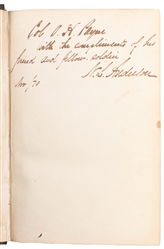 Col O. H Payne
with the compliments of his
friend and fellow soldier
N. L. Anderson
Nov/70